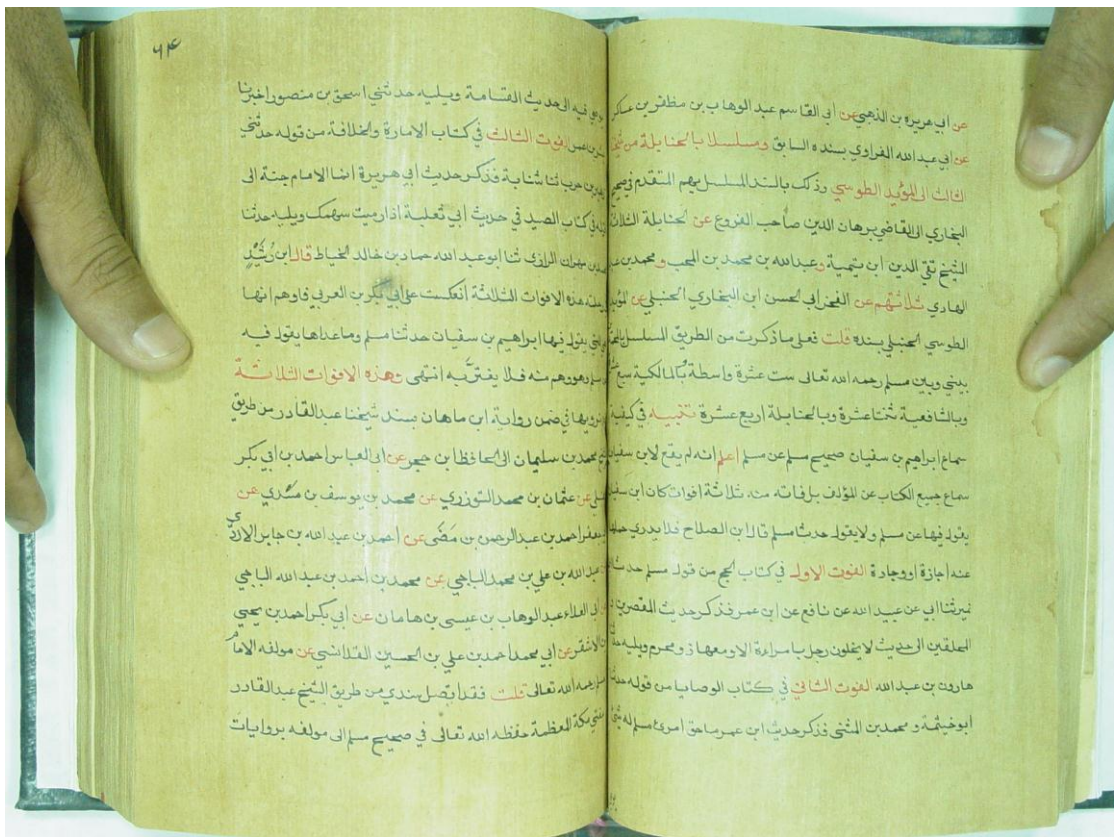 عن أبي هريرة بن الذهبي عن أبي القاسم عبد الوهاب بن مظفر بن عساكر
عن أبي عبد الله الفراوي بسنده السابق ومسلسلا بالحنابلة من
الثالث الى المؤيد الطوسي وذلك بالسند المسلسل بهم المتقدم في صحيح
البخاري الى القاضي برهان الدين صاحب الفروع عن الحنابلة الثلاثة
الشيخ تقي الدين ابن تيمية وعبد الله بن محمد بن المحب ومحمد بن عبد
الهادي ثلاثتهم عن الفخر أبي الحسن ابن البخاري الحنبلي عن المؤيد
الطوسي الحنبلي بسنده قلت فعلى ما ذكرت من الطريق المسلسل
بيني وبين مسلم رحمه الله تعالى ست عشرة واسطة بالمالكية سبع
وبالشافعية ثنتا عشرة وبالحنابلة اربع عشرة تنبيه في كيفية
سماع ابراهيم بن سفيان صحيح مسلم عن مسلم اعلم انه لم يقع لابن سفيان
سماع جميع الكتاب عن المؤلف بل فاته منه ثلاثة افوات كان ابن سفيان
يقول فيها عن مسلم ولا يقول حدثنا مسلم قال ابن الصلاح فلا يدري حملها
عنه اجازة او وجادة الفوت الاول في كتاب الحج من قول مسلم حدثنا
نمير ثنا ابي عن عبيد الله عن نافع عن ابن عمر فذكر حديث المقصرين
المحلقين الى حديث لا يخلون رجل بامراءة الا ومعها ذو محرم ويليه حدثنا
هارون بن عبد الله الفوت الثاني في كتاب الوصايا من قوله حدثنا
أبو خيثمة ومحمد بن المثنى فذكر حديث ابن عمر ما حق امرئ مسلم له شئ
٦٤
فيه الى حديث القسامة ويليه حدثني اسحق بن منصور اخبرنا
بشر بن عمر الفوت الثالث في كتاب الامارة والخلافة من قوله حدثني
زهير بن حرب ثنا شبابة فذكر حديث أبي هريرة انما الامام جنة الى
قوله في كتاب الصيد في حديث أبي ثعلبة اذا رميت سهمك ويليه حدثنا
محمد بن مهران الرازي ثنا ابو عبد الله حماد بن خالد الخياط قال ابن رُشَيْد
هذه الافوات الثلاثة انعكست على أبي بكر بن العربي فاوهم انها
التي يقول فيها ابراهيم بن سفيان حدثنا مسلم وما عداها يقول فيه
مسلم وهو وهم منه فلا يغتر به انتهى وهذه الافوات الثلاثة
نرويها في ضمن رواية ابن ماهان بسند شيخنا عبد القادر من طريق
محمد بن سليمان الى الحافظ ابن حجر عن ابي العباس احمد بن أبي بكر
عن عثمان بن محمد التوزري عن محمد بن يوسف بن مسدي عن
جعفر احمد بن عبد الرحمن بن مَضَى عن احمد بن عبد الله بن جابر الازدي
عن عبد الله بن علي بن محمد الباجي عن محمد بن احمد بن عبد الله الباجي
عن أبي العلاء عبد الوهاب بن عيسى بن هامان عن أبي بكر احمد بن يحيى
بن الاشقر عن أبي محمد احمد بن علي بن الحسين القلانسي عن مولفه الامام
مسلم رحمه الله تعالى قلت فقد اتصل سندي من طريق الشيخ عبد القادر
مفتي بكة المعظمة حفظه الله تعالى في صحيح مسلم الى مولفه بروايات